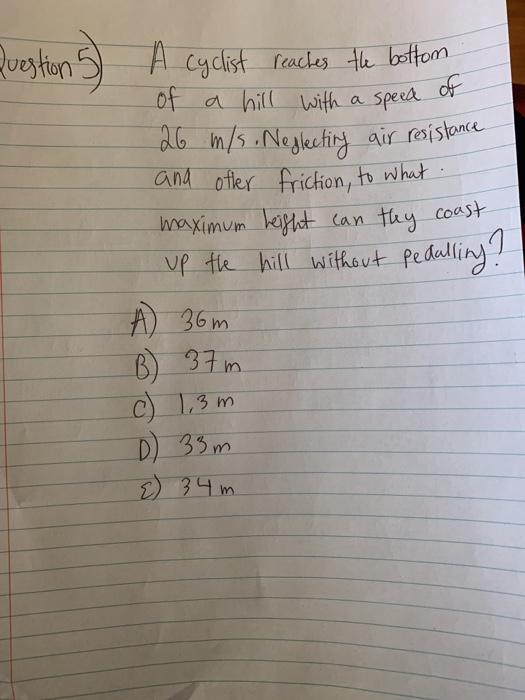 Question 5) A cyclist reaches the bottom
of a hill with a speed of
26 m/s. Neglecting air resistance
and other friction, to what
maximum height can they coast
up the hill without pedalling?
A) 36 m
B) 37 m
C) 1,3 m
D) 33 m
E) 34 m